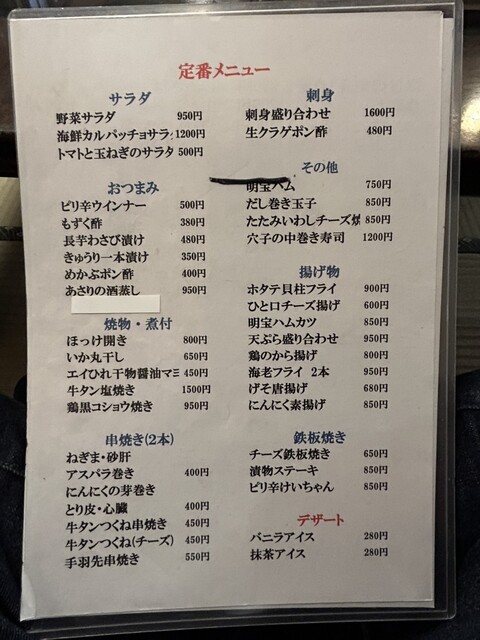 定番メニュー
サラダ
野菜サラダ 950円
海鮮カルパッチョサラ 1200円
トマトと玉ねぎのサラタ 500円
おつまみ
ピリ辛ウインナー 500円
もずく酢 380円
長芋わさび漬け 480円
きゅうり一本漬け 350円
めかぶポン酢 400円
あさりの酒蒸し 950円
焼物・煮付
ほっけ開き 800円
いか丸干し 650円
エイひれ干物醤油マヨ 450円
牛タン塩焼き 1500円
鶏黒コショウ焼き 950円
串焼き(2本)
ねぎま・砂肝
アスパラ巻き 400円
にんにくの芽巻き
とり皮・心臓 400円
牛タンつくね串焼き 450円
牛タンつくね(チーズ) 450円
手羽先串焼き 550円
刺身
刺身盛り合わせ 1600円
生クラゲポン酢 480円
その他
明宝ハム 750円
だし巻き玉子 850円
たたみいわしチーズ焼 850円
穴子の中巻き寿司 1200円
揚げ物
ホタテ貝柱フライ 900円
ひと口チーズ揚げ 600円
明宝ハムカツ 850円
天ぷら盛り合わせ 950円
鶏のから揚げ 800円
海老フライ 2本 950円
げそ唐揚げ 680円
にんにく素揚げ 850円
鉄板焼き
チーズ鉄板焼き 650円
漬物ステーキ 850円
ピリ辛けいちゃん 850円
デザート
バニラアイス 280円
抹茶アイス 280円